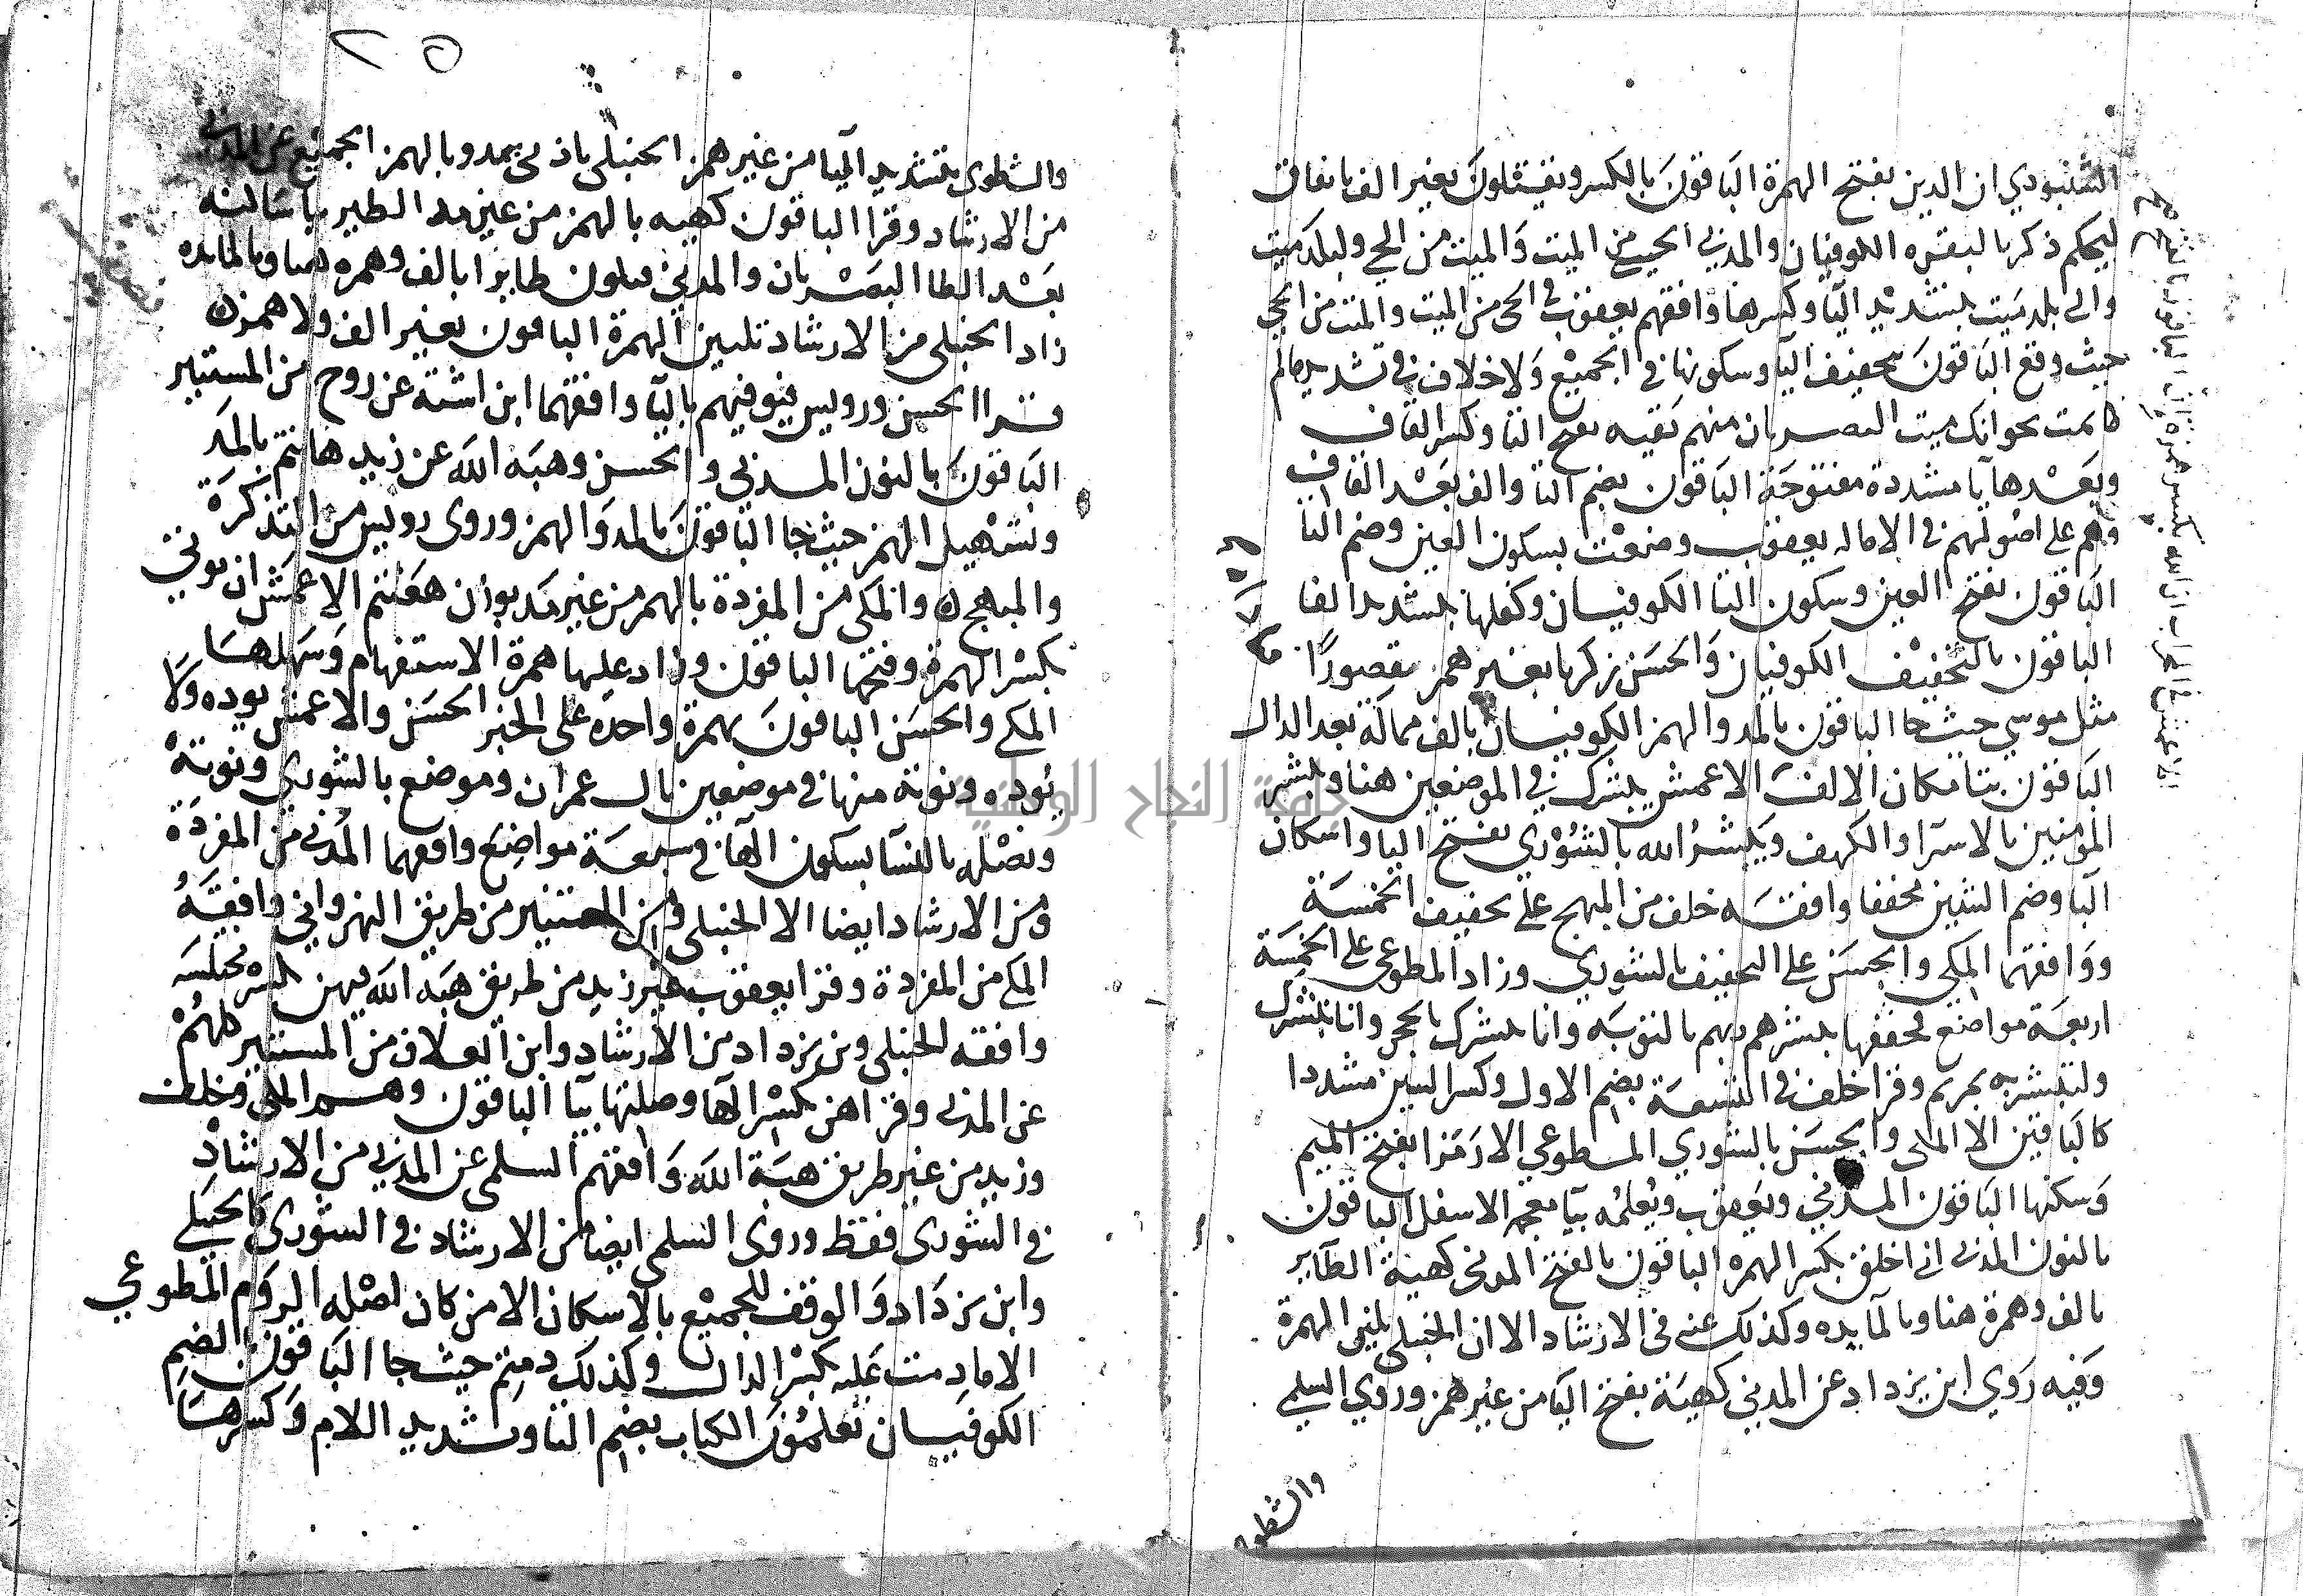 الشنبودي ان الدين بفتح الهمزة الباقون بالكسر ويقتلون بغير الف باتفاق
ليحكم ذكر بالبقره الكوفيان والمدني الحي من الميت والميت من الحي ولبلد ميت
والى بلد ميت بتشديد اليا وكسرها وافقهم يعقوب في الحى من الميت والميت من الحي
حيث وقع الباقون بتخفيف اليا وسكونها في الجميع ولا خلاف في تشديد مالم
يمت نحو انك ميت البصريان منهم تقيه بفتح التا وكسر القاف
وبعدها يا مشددة مفتوحة الباقون بضم التا والف بعد القاف
وهم على اصولهم في الاماله يعقوب وضعت بسكون العين وضم التا
الباقون بفتح العين وسكون التا الكوفيان وكفلها بتشديد الفا
الباقون بالتخفيف الكوفيان والحسن زكريا بغير همز مقصورا
مثل موسي حيث جا الباقون بالمد والهمز الكوفيان بالف ممالة بعد الدال
الباقون بتا مكان الالف الاعمش يبشرك في الموضعين هنا ويبشر
المومنين بالاسرا والكهف ويبشر الله بالشوري بفتح اليا واسكان
البا وضم الشين مخففا وافقه خلف من المبهج على تخفيف الخمسة
ووافقهما المكي والحسن على التخفيف بالشوري وزاد المطوعي على الخمسة
اربعة مواضع فخففها يبشرهم ربهم بالتوبه وانا نبشرك بالحجر وانا نبشرك
ولتبشر به بمريم وقرا خلف في التسعة بضم الاول وكسر الشين مشددا
كالباقين الا المكى والحسن بالشوري المطوعي الا رمزا بفتح الميم
وسكنها الباقون المدني ويعقوب ويعلمه بيا معجمه الاسفل الباقون
بالنون المدني اني اخلق بكسر الهمزه الباقون بالفتح المدني كهية الطاير
بالف وهمزة هنا وبالمايده وكذلك عنه في الارشاد الا ان الحنبلي يلين الهمزة
وفيه روي ابن يزداد عن المدني كهية بفتح اليا من غير همز وروي السلمي
والشطوي
والشطوى بتشديد اليا من غير همز الحنبلى باذنى بمد وبالهمز الجميع عن المدني
من الارشاد وقرا الباقون كهيه بالهمز من غير مد الطير بيا ساكنه
بعد الطا البصريان والمدني فيكون طايرا بالف وهمزه هنا وبالمايده
زاد الحنبلى من الارشاد تليين الهمزة الباقون بغير الف ولا همزه
قرا الحسن ورويس فيوفيهم باليا وافقهما ابن اشته عن روح من المستنير
الباقون بالنون المدني والحسن وهبه الله عن زيد هانتم بالمد
وتسهيل الهمز حيث جا الباقون بالمد والهمز وروى رويس من التذكرة
والمبهج والمكى من المفردة بالهمز من غير مد بوزن هعنتم الاعمش ان يوتي
بكسر الهمزة وفتحها الباقون وزاد عليها همزة الاستفهام وسهلها
المكي والحسن الباقون بهمزة واحده على الخبر الحسن والاعمش يوده ولا
يوده ونوته منها في موضعين بال عمران وموضع بالشوري ونوته
ونصله بالنسا بسكون الها في سبعة مواضع وافقهما المدني من المفردة
ومن الارشاد ايضا الا الحنبلى ومن المستنير من طريق النهرواني وافقه
المكي من المفردة وقرا يعقوب غير زيد من طريق هبه الله بهن بكسر مختلسه
وافقه الحنبلي وبن يزداد من الارشاد وابن العلاف من المستنير كلهم
عن المدني وقراهن بكسر الها وصلتها بيا الباقون وهم المكي وخلف
وزيد من غير طريق هبة الله وافقهم السلمي عن المدني من الارشاد
في الشورى فقط وروى السلمي ايضا من الارشاد في الشورى كالحنبلي
وابن يزداد والوقف للجميع بالاسكان الا من كان اصله الروم المطوعي
الا ما دمت عليه بكسر الدال وكذلك دمتم حيث جا الباقون بالضم
الكوفيان تعلمون الكتاب بضم التا وتشديد اللام وكسرها
جامعة النجاح الوطنية